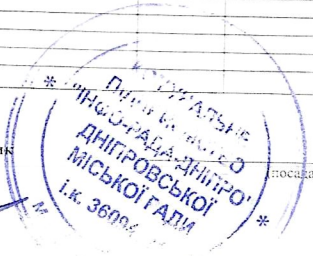 КОМУНАЛЬНЕ
ПІДПРИЄМСТВО
"ІНФО-РАДА-ДНІПРО"
ДНІПРОВСЬКОЇ
МІСЬКОЇ РАДИ
і.к. 36094
(посада